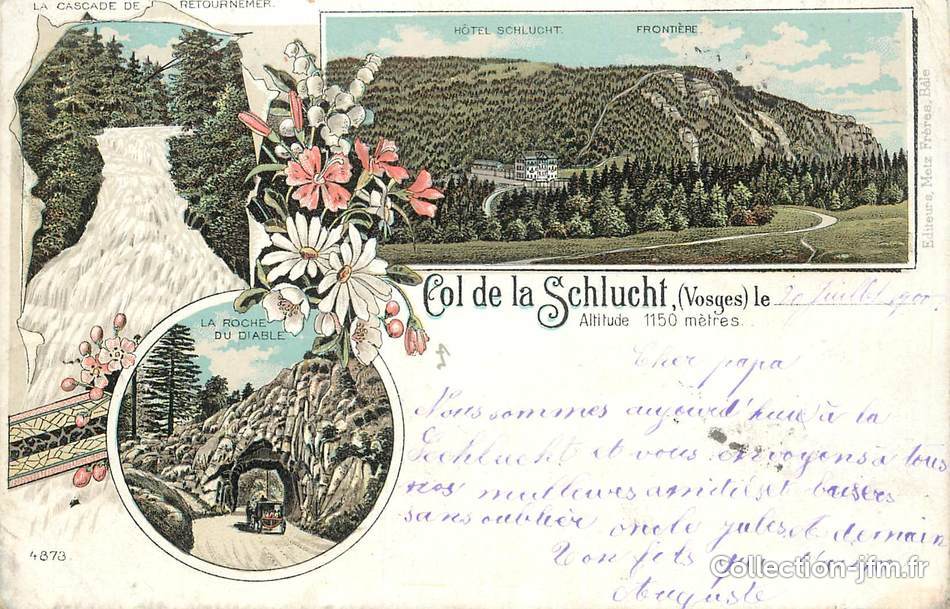 LA CASCADE DE RETOURNEMER.
HÔTEL SCHLUCHT. FRONTIÈRE.
Editeurs, Metz Frères, Bâle
Col de la Schlucht, (Vosges) le 20 Juillet 1900
Altitude 1150 mètres.
LA ROCHE
DU DIABLE
Cher papa
Nous sommes aujourd'hui à la
Schlucht et vous envoyons à tous
nos meilleures amitié et baisers
sans oublier oncle jules et demain
Ton fils
Auguste
4873.
Collection-jfm.fr